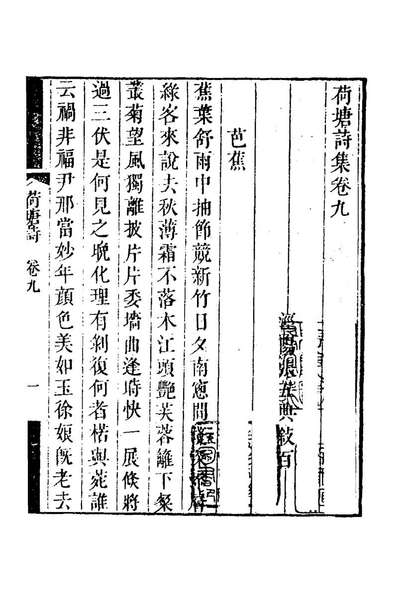 荷塘詩集卷九
涇陽張五典敘百
芭蕉
蕉葉舒雨中抽節競新竹日夕南窻間
綠客來說去秋薄霜不落木江頭艷芙蓉籬下粲
叢菊望風獨離披片片委墻曲逢時快一展倏將
過三伏是何見之晚化理有剝復何者楛與菀誰
云禍非福尹那當妙年顏色美如玉徐娘旣老去
荷塘詩 卷九 一